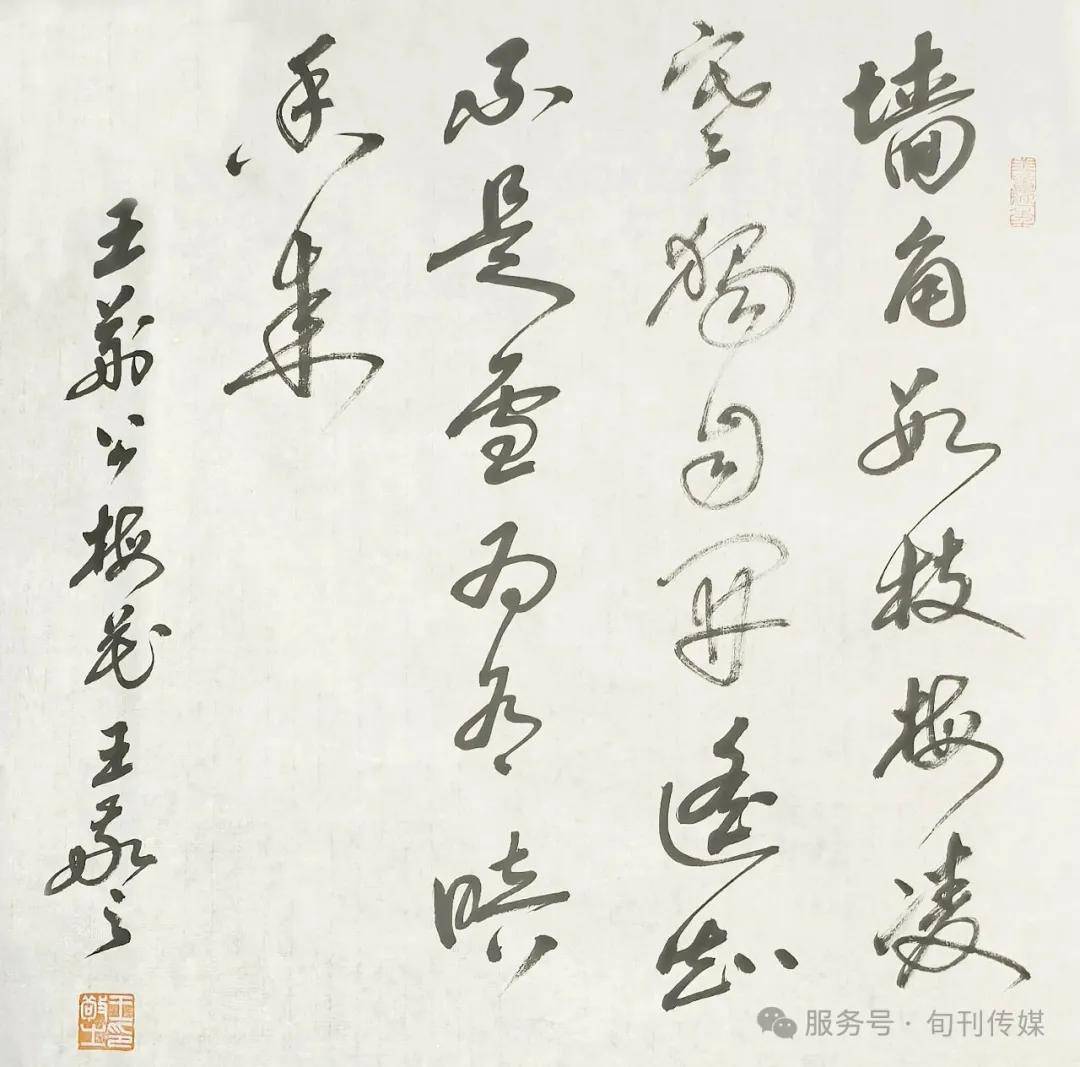 墙角数枝梅凌
寒独自开遥知
不是雪为有暗
香来
王荆公梅花王敬之
服务号·旬刊传媒